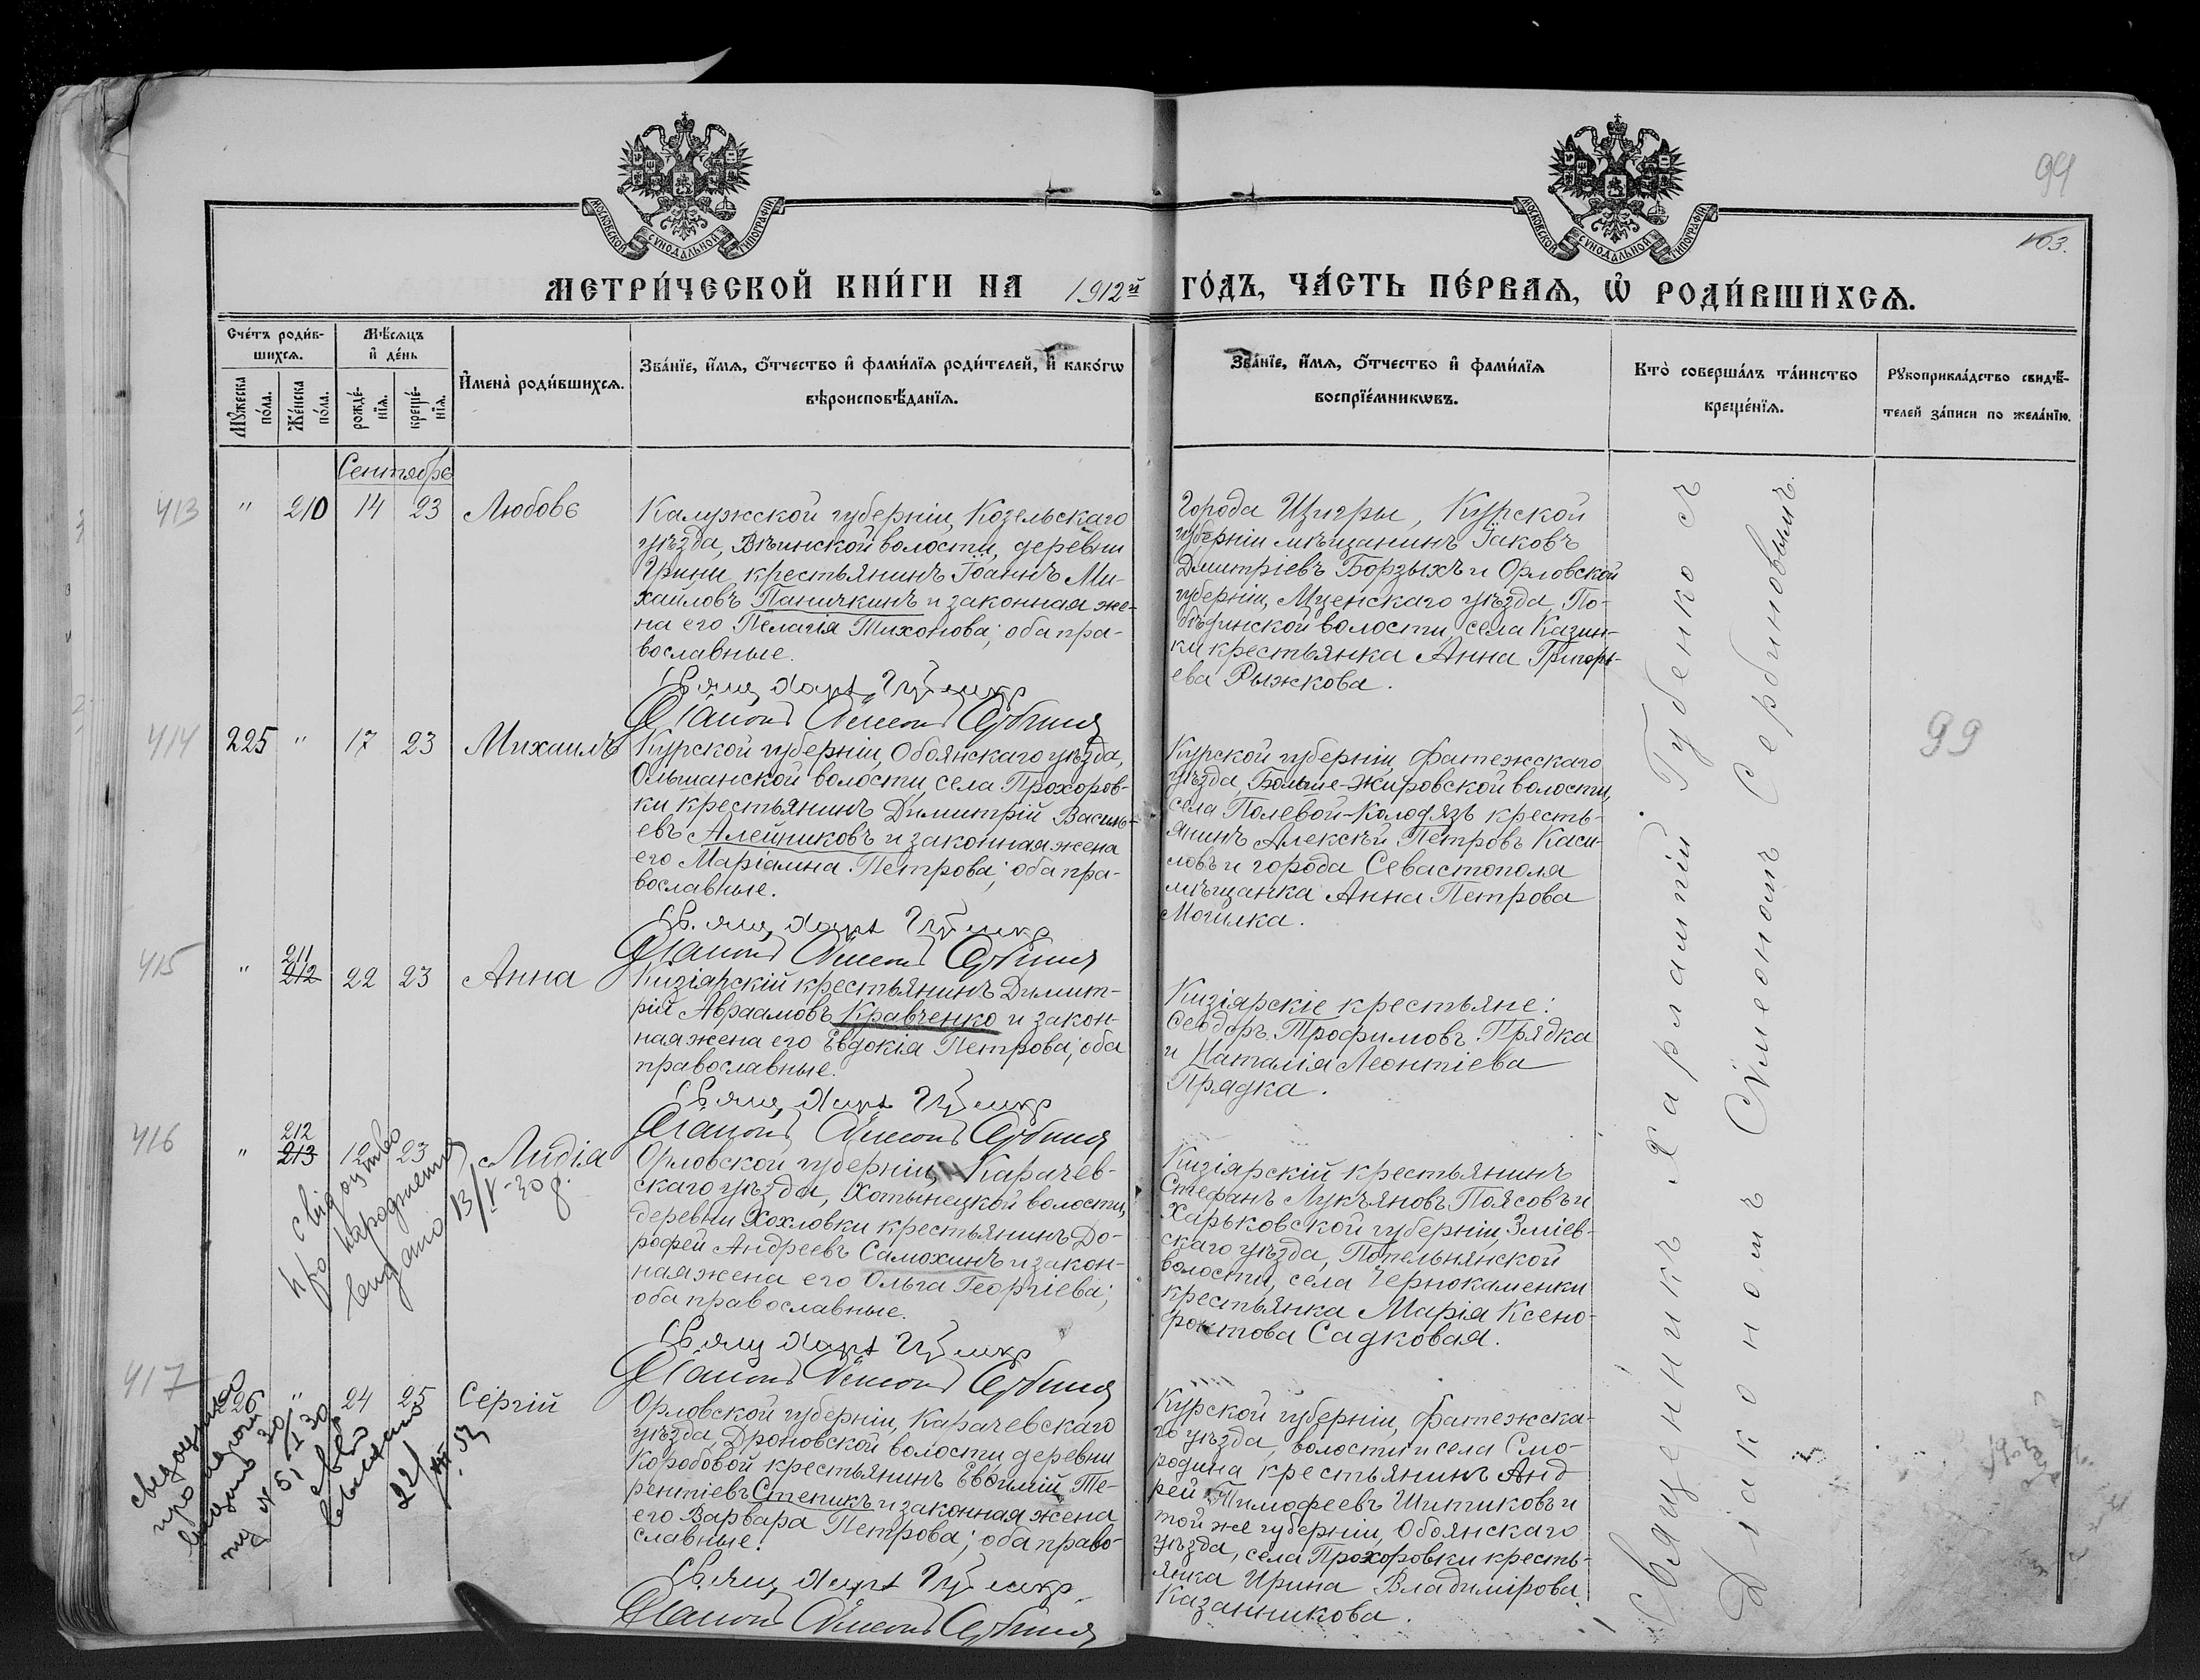 94
103.
МОСКОВСКОЙ СѴНОДАЛЬНОЙ ТИПОГРАФІИ
МОСКОВСКОЙ СѴНОДАЛЬНОЙ ТИПОГРАФІИ
МЕТРИ́ЧЕСКОЙ КНИ́ГИ НА 1912й ГО́ДЪ, ЧА́СТЬ ПЕ́РВАѦ, Ѡ РОДИ́ВШИХСѦ.
Сче́тъ роди́в-
шихсѧ.
Мꙋ́жеска
по́ла.
Же́нска
по́ла.
Мѣ́сѧцъ
и҆ де́нь
рожде́-
нїѧ.
креще́-
нїѧ.
И҆мена̀ роди́вшихсѧ.
Зва́нїе, и҆́мѧ, ѻ҆́тчество и҆ фамѝлїѧ роди́телей, и҆ како́гѡ
вѣроисповѣ́данїѧ.
Зва́нїе, и҆́мѧ, ѻ҆́тчество и҆ фамѝлїѧ
воспрїе́мникѡвъ.
Кто̀ соверша́лъ та́инство
креще́нїѧ.
Рꙋкоприкла́дство свидѣ́-
телей за́писи по жела́нїю.
Сентябрь
413 " 210 14 23 Любовь
Калужской губерніи, Козельскаго
уѣзда, Вѣинской волости, деревни
Грины крестьянинъ Іоаннъ Ми-
хайловъ Паничкинъ и законная же-
на его Пелагія Тихонова; оба пра-
вославные.
Города Щигры, Курской
губерніи мѣщанинъ Іаковъ
Дмитріевъ Борзыхъ и Орловской
губерніи, Мценскаго уѣзда, По-
бѣдинской волости, села Казин-
ки крестьянка Анна Григорь-
ева Рыжкова.
414 225 " 17 23 Михаилъ
Курской губерніи, Обоянскаго уѣзда,
Ольшанской волости, села Прохоров-
ки крестьянинъ Димитрій Василь-
евъ Алейниковъ и законная жена
его Маріамна Петрова; оба пра-
вославные.
Курской губерніи, Фатежскаго
уѣзда, Больше-Жировской волости,
села Полевой-Колодязь кресть-
янинъ Алексѣй Петровъ Каси-
ловъ и города Севастополя
мѣщанка Анна Петрова
Могилка.
99
415 " 211 212 22 23 Анна
Кизіярскій крестьянинъ Димит-
рій Авраамовъ Кравченко и закон-
ная жена его Евдокія Петрова; оба
православные.
Кизіярскіе крестьяне:
Ѳеодоръ Трофимовъ Прядка
и Наталія Леонтіева
Прядка.
416 " 212 213 12 23 Лидія
Орловской губерніи, Карачев-
скаго уѣзда, Хотынецкой волости,
деревни Хохловки крестьянинъ До-
рофей Андреевъ Самохинъ и закон-
ная жена его Ольга Георгіева;
оба православные.
Кизіярскій крестьянинъ
Стефанъ Лукъяновъ Поясовъ и
Харьковской губерніи, Зміев-
скаго уѣзда, Попельнянской
волости, села Чернокаменки
крестьянка Марія Ксено-
фонтова Садковая.
свідоцтво
про народження
видано 13/V-30 р.
417 226 " 24 25 Сергій
Орловской губерніи, Карачевскаго
уѣзда, Дроновской волости, деревни
Коробовой крестьянинъ Евѳимій Те-
рентіевъ Степикъ и законная жена
его Варвара Петрова; оба право-
славные.
Курской губерніи, Фатежска-
го уѣзда, волости и села Смо-
родина крестьянинъ Анд
рей Тимофеевъ Шитиковъ и
той же губерніи, Обоянскаго
уѣзда, села Прохоровки кресть-
янка Ирина Владимірова
Казанникова.
Священникъ Харлампій Губенко съ
Діакономъ Сѵмеономъ Сербиновымъ.